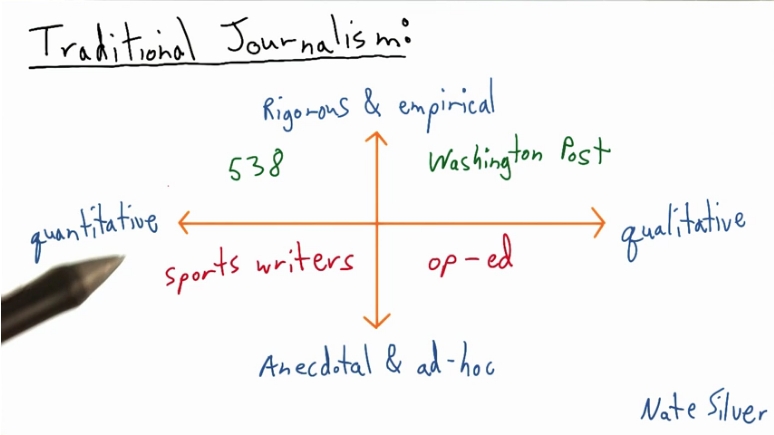 Traditional Journalism:
Rigorous & empirical
538
Washington Post
quantitative
qualitative
sports writers
op-ed
Anecdotal & ad-hoc
Nate Silver